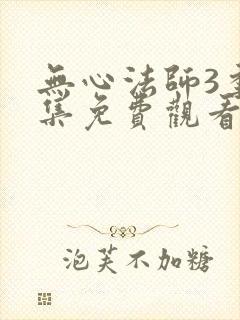 無心法師3
集免費觀看
泡芙不加糖